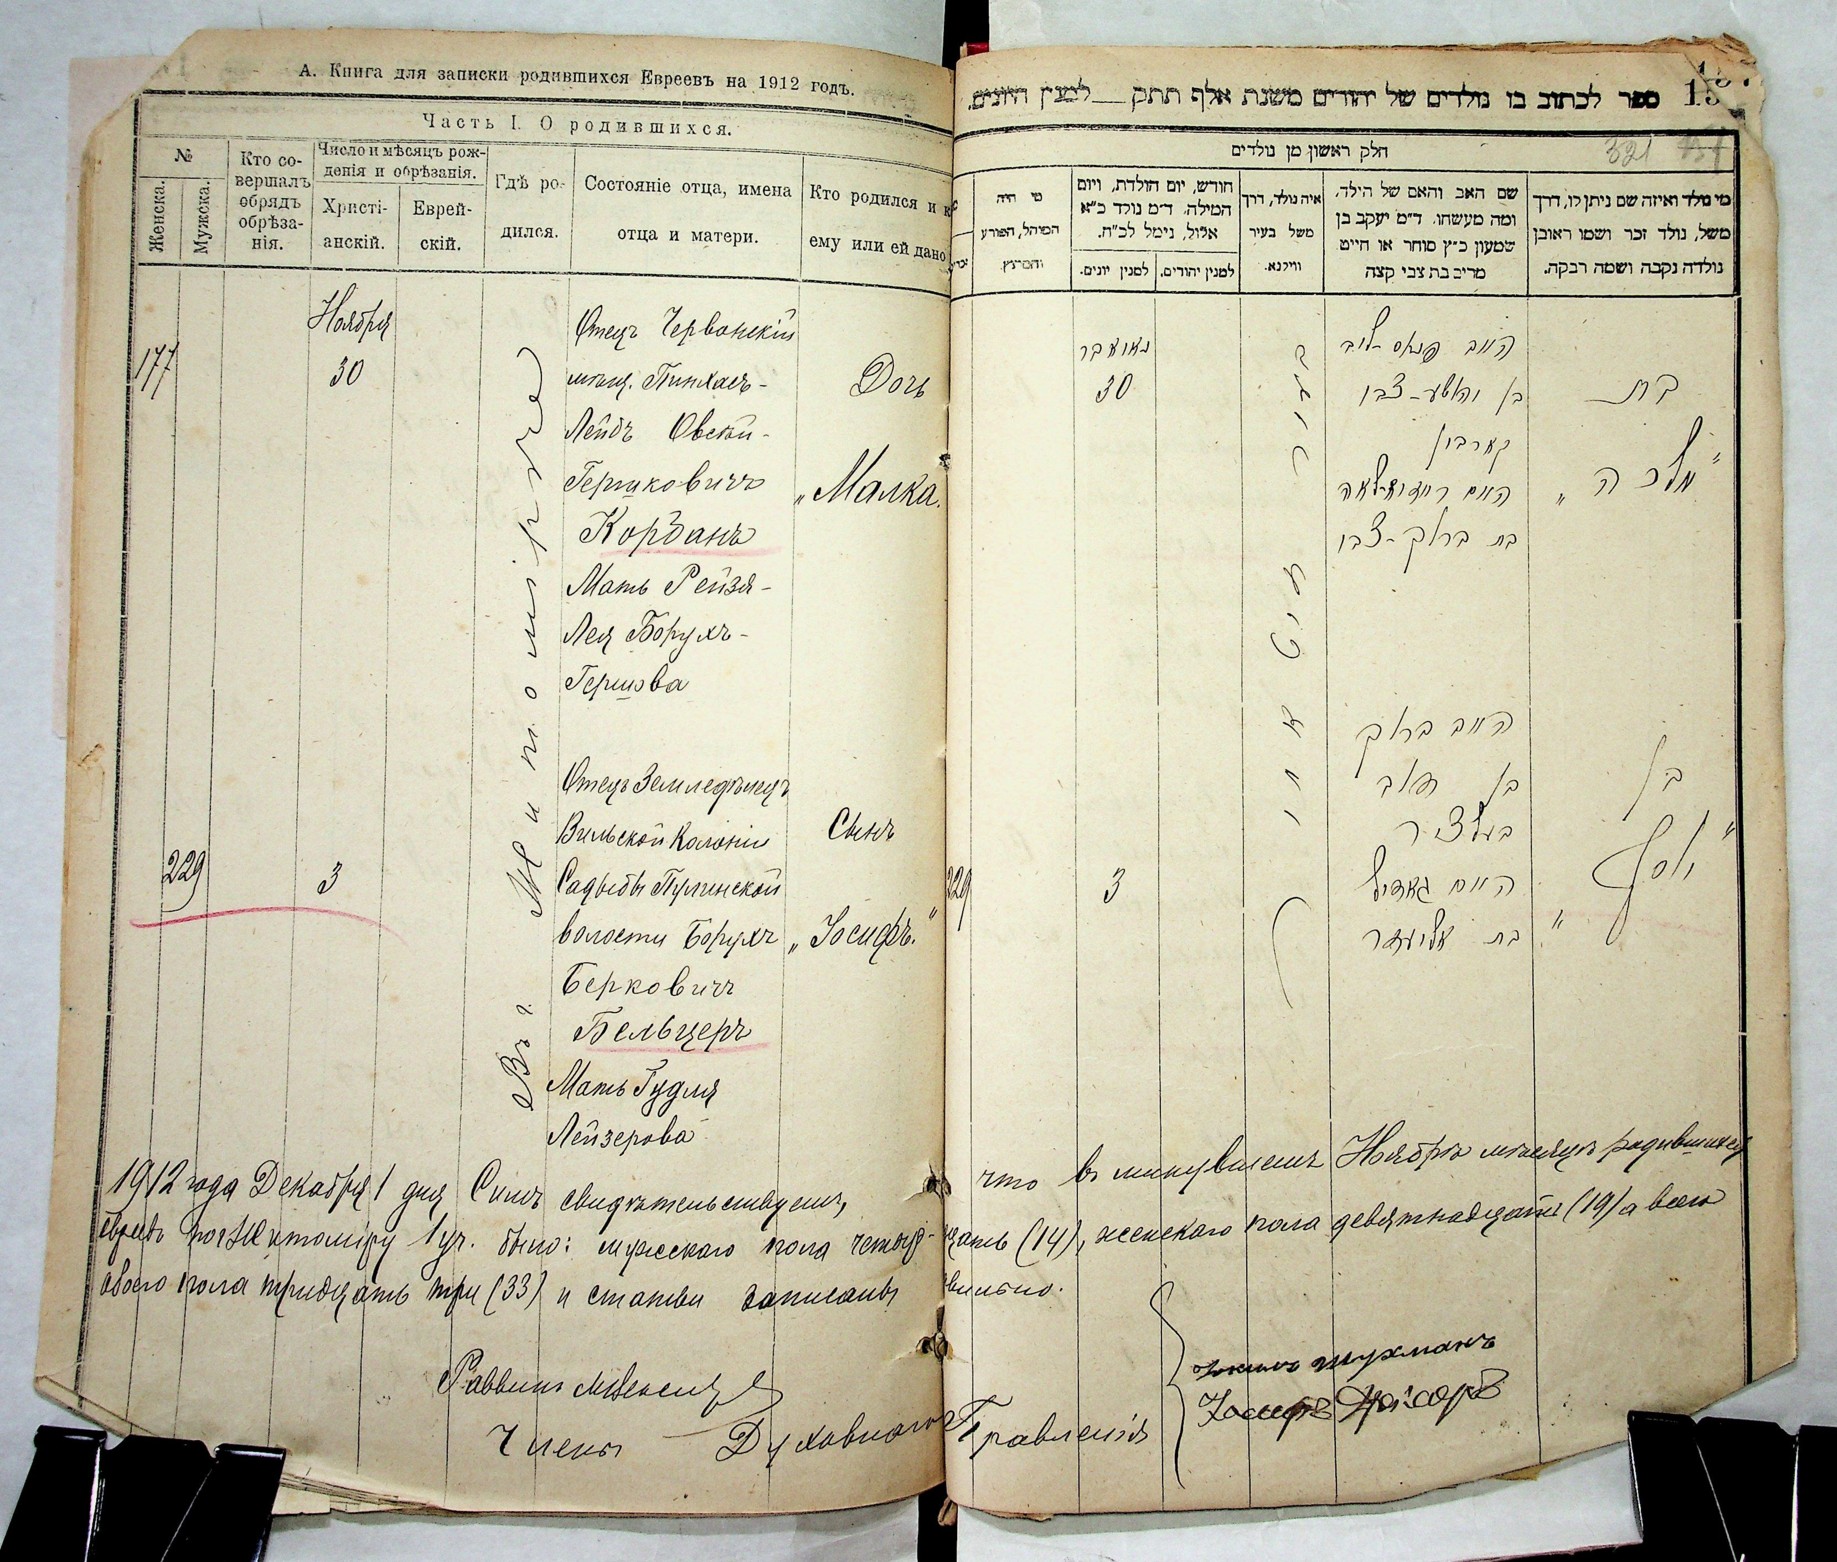 А. Книга для записки родившихся Евреевъ на 1912 годъ.
Часть I. О родившихся.
№
Женска.
Мужска.
Кто со-
вершалъ
обрядъ
обрѣза-
нія.
Число и мѣсяцъ рож-
денія и обрѣзанія.
Христі-
анскій.
Еврей-
скій.
Гдѣ ро-
дился.
Состояніе отца, имена
отца и матери.
Кто родился и к
ему или ей дано
Ноября
177
30
Въ г. Житомірѣ
Отецъ Червонскій
мѣщ. Пинхасъ-
Лейбъ Овсѣй-
Гершковичъ
Корбанъ
Мать Рейзя-
Лея Борухъ-
Гершова
Дочь
„Малка.
229
3
Отецъ Земледѣлецъ
Вильской Колоніи
Садыбы Пулинской
волости Борухъ
Берковичъ
Бельцеръ
Мать Гудля
Лейзерова
Сынъ
„Іосифъ.“
ספר לכתוב בו נולדים של יהודים משנת אלף תתק __ למנין היונים.
חלק ראשון מן נולדים
321
מי היה
המוהל, הפורע
והמוצץ
חודש, יום הולדת, ויום
המילה. ד״מ נולד כ״א
אלול, נימל לכ״ח.
למנין יונים.
למנין יהודים.
איה נולד, דרך
משל בעיר
ווילנא.
שם האב והאם של הילד,
ומה מעשהו. ד״מ יעקב בן
שמעון כ״ץ סוחר או חייט
מרים בת צבי קצה
מי נולד ואיזה שם ניתן לו, דרך
משל, נולד זכר ושמו ראובן
נולדה נקבה ושמה רבקה.
נאועבר
30
בעיר
זיטאמיר
האב פנחס-ליב
בן יהושע-צבי
קארבון
האם רייזא-לאה
בת ברוך-צבי
בת
„מלכה“
229
3
האב ברוך
בן דוב
בעלציר
האם גאדיל
בת אליעזר
בן
„יוסף“
1912 года Декабря 1 дня Симъ свидѣтельствуемъ, что въ минувшемъ Ноябрѣ мѣсяцѣ родившихся
евреевъ по г. Житоміру 1 уч. было: мужскаго пола четыр-надцать (14), женскаго пола девятнадцать (19) а всего
обоего пола тридцать три (33) и статьи записаны
Раввинъ
Члены Духовнаго Правленія
Шухманъ
Іосифъ